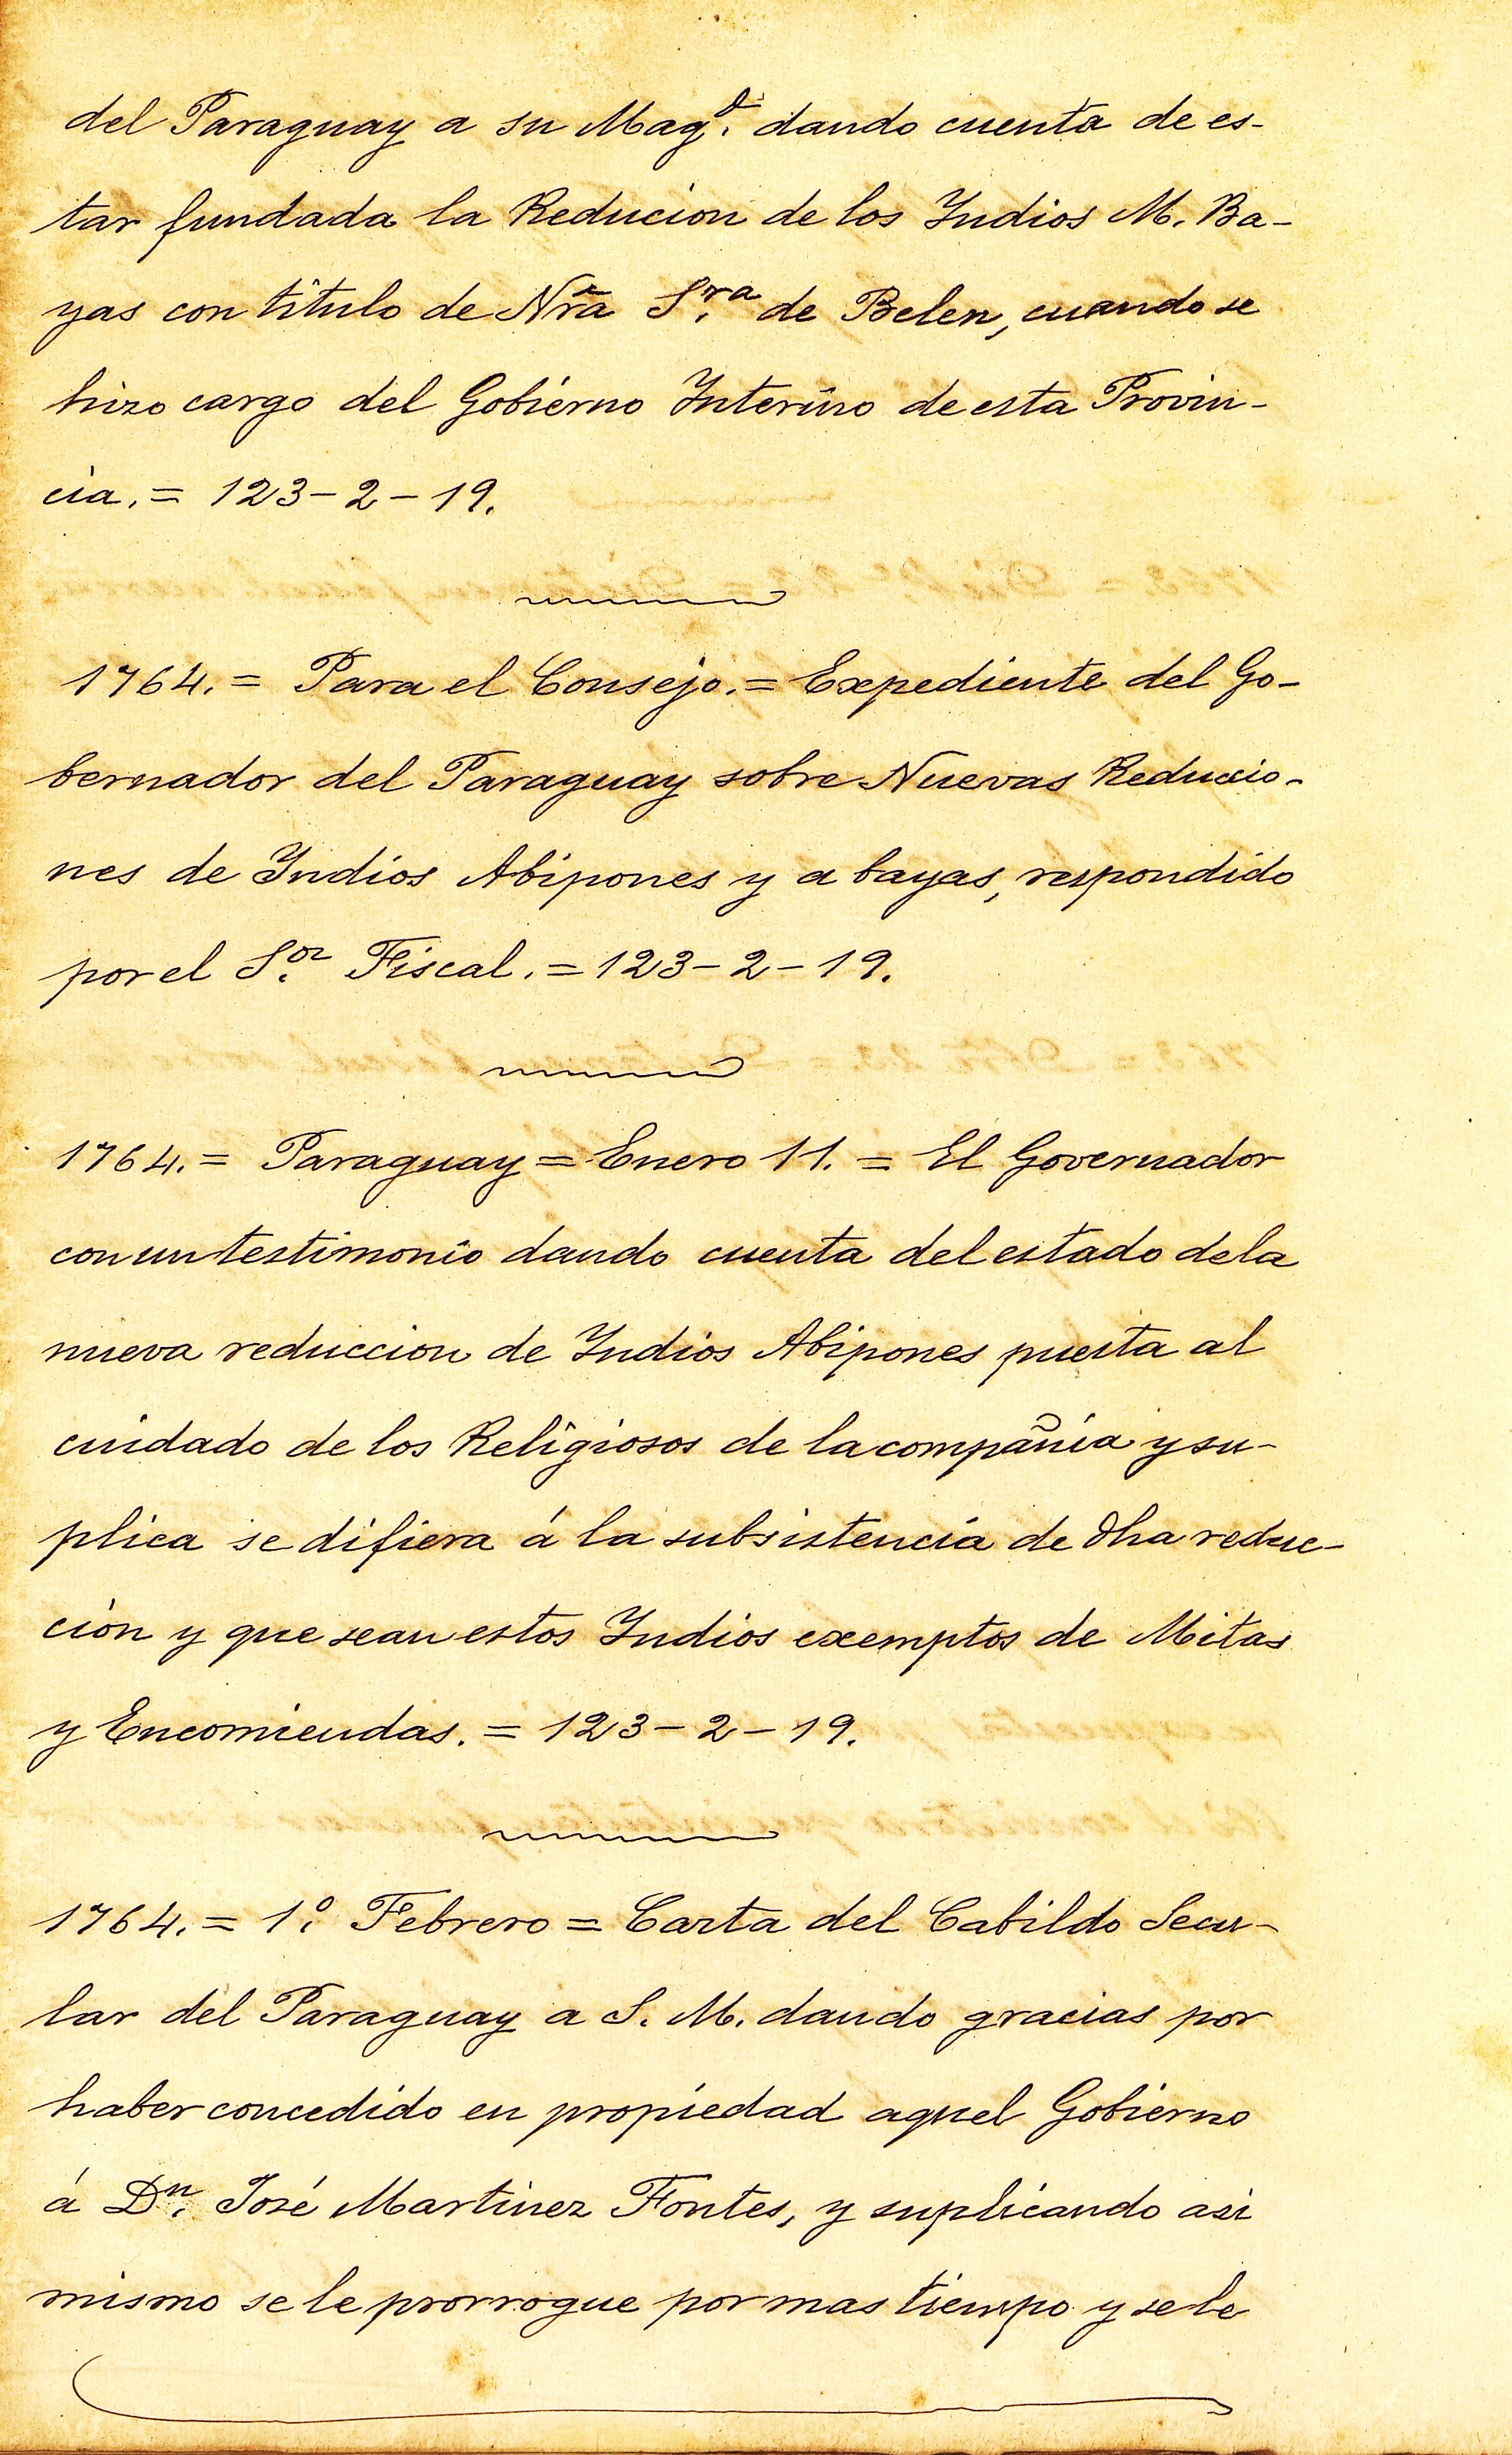 del Paraguay a su Mag.d dando cuenta de es-
tar fundada la Reducion de los Indios M. Ba-
yas con titulo de Nra S.ra de Belen, cuando se
hizo cargo del Gobierno Interino de esta Provin-
cia. = 123-2-19.
1764. = Para el Consejo. = Expediente del Go-
bernador del Paraguay sobre Nuevas Reduccio-
nes de Indios Abipones y a bayas, respondido
por el S.or Fiscal. = 123-2-19.
1764. = Paraguay = Enero 11. = El Governador
con un testimonio dando cuenta del estado de la
nueva reduccion de Indios Abipones puesta al
cuidado de los Religiosos de la compañia y su-
plica se difiera á la subsistencia de dha reduc-
ción y que sean estos Indios exemptos de Mitas
y Encomiendas. = 123-2-19.
1764. = 1.º Febrero = Carta del Cabildo Secu-
lar del Paraguay a S. M. dando gracias por
haber concedido en propiedad aquel Gobierno
á D.n José Martinez Fontes, y suplicando asi
mismo se le prorrogue por mas tiempo y se le